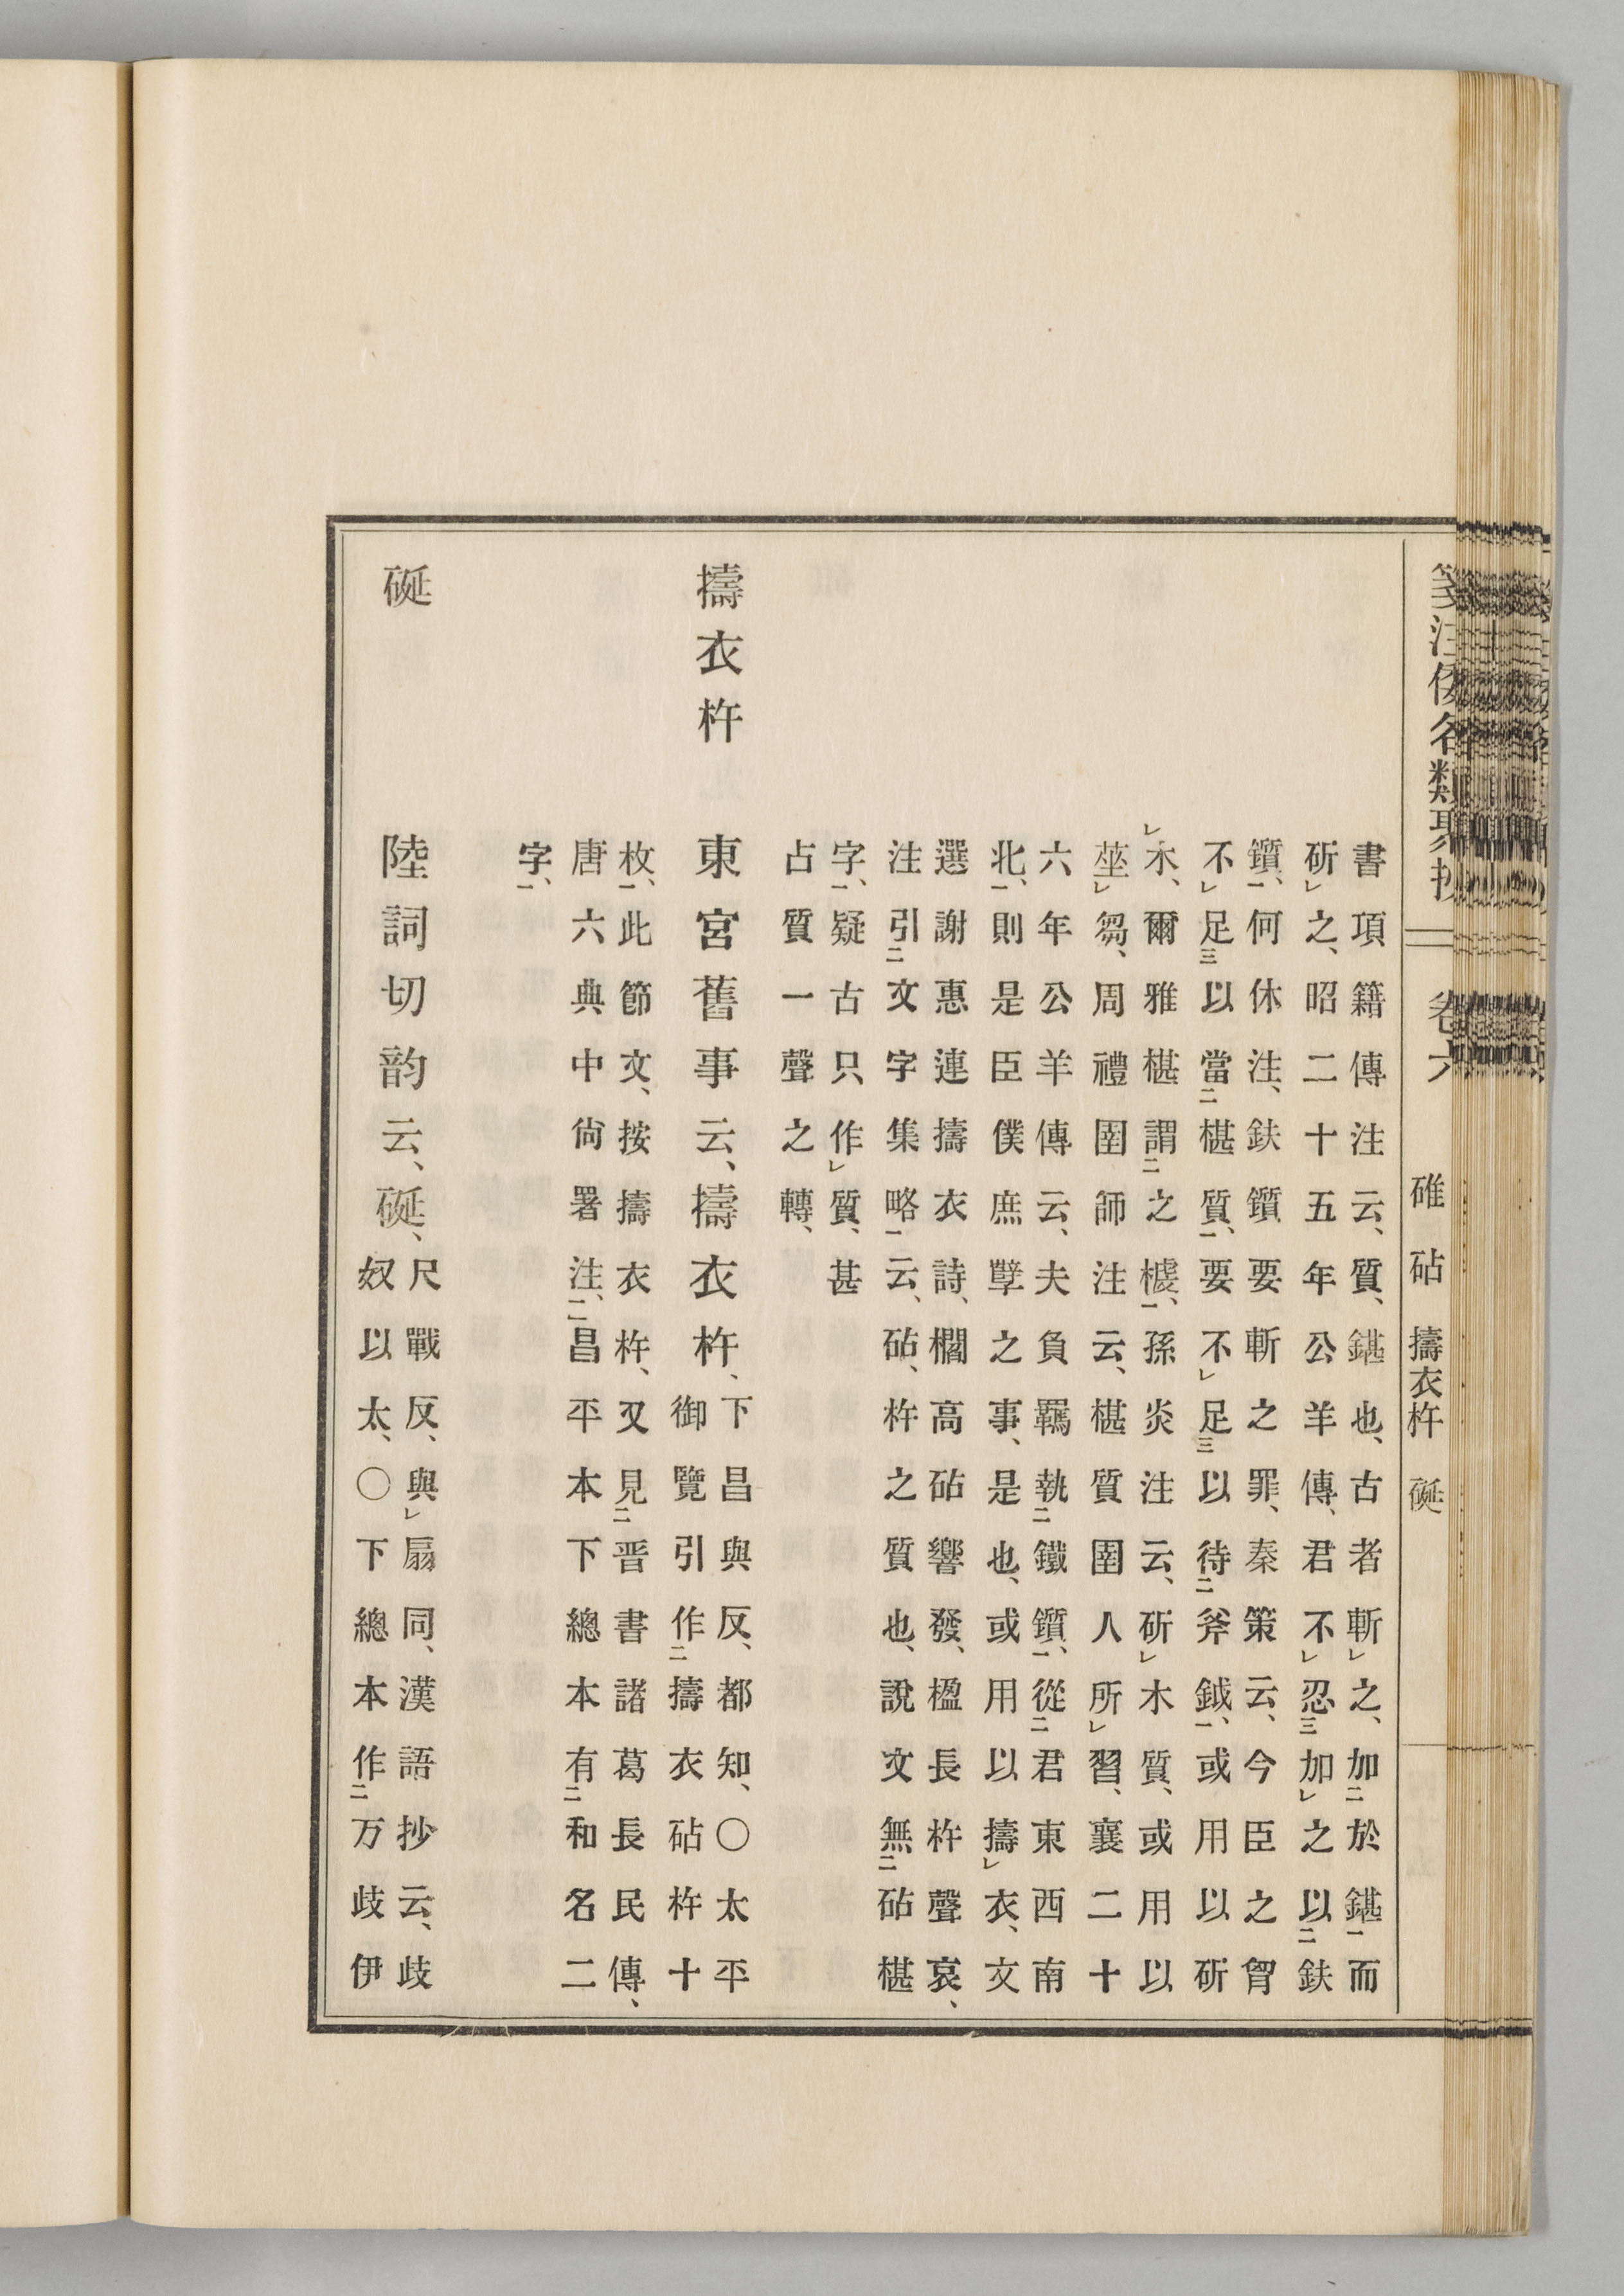 箋注倭名類聚抄 卷六 碓 砧 擣衣杵 硟
書項籍傳注云、質、鍖也、古者斬之、加於鍖而
斫之、昭二十五年公羊傳、君不忍加之以鈇
鑕、何休注、鈇鑕要斬之罪、秦策云、今臣之胷
不足以當椹質、要不足以待斧鉞、或用以斫
木、爾雅椹謂之榩、孫炎注云、斫木質、或用以
莝芻、周禮圉師注云、椹質圉人所習、襄二十
六年公羊傳云、夫負羈執鐵鑕、從君東西南
北、則是臣僕庶孼之事、是也、或用以擣衣、文
選謝惠連擣衣詩、櫩高砧響發、楹長杵聲哀、
注引文字集略云、砧、杵之質也、說文無砧椹
字、疑古只作質、甚
占質一聲之轉、
擣衣杵 東宮舊事云、擣衣杵、下昌與反、都知、〇太平
御覽引作擣衣砧杵十
枚、此節文、按擣衣杵、又見晉書諸葛長民傳、
唐六典中尙署注、昌平本下總本有和名二
字、
硟 陸詞切韵云、硟、尺戰反、與扇同、漢語抄云、歧
奴以太、〇下總本作万歧伊